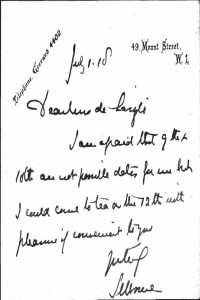 Telephone, Gerrard 4402
49, Mount Street,
W.1.
July 1. 18
Dear Mme de Laszlo
I am afraid that 9th &
10th are not possible dates for me but
I could come to tea on the 12th with
pleasure if convenient to you
Selborne